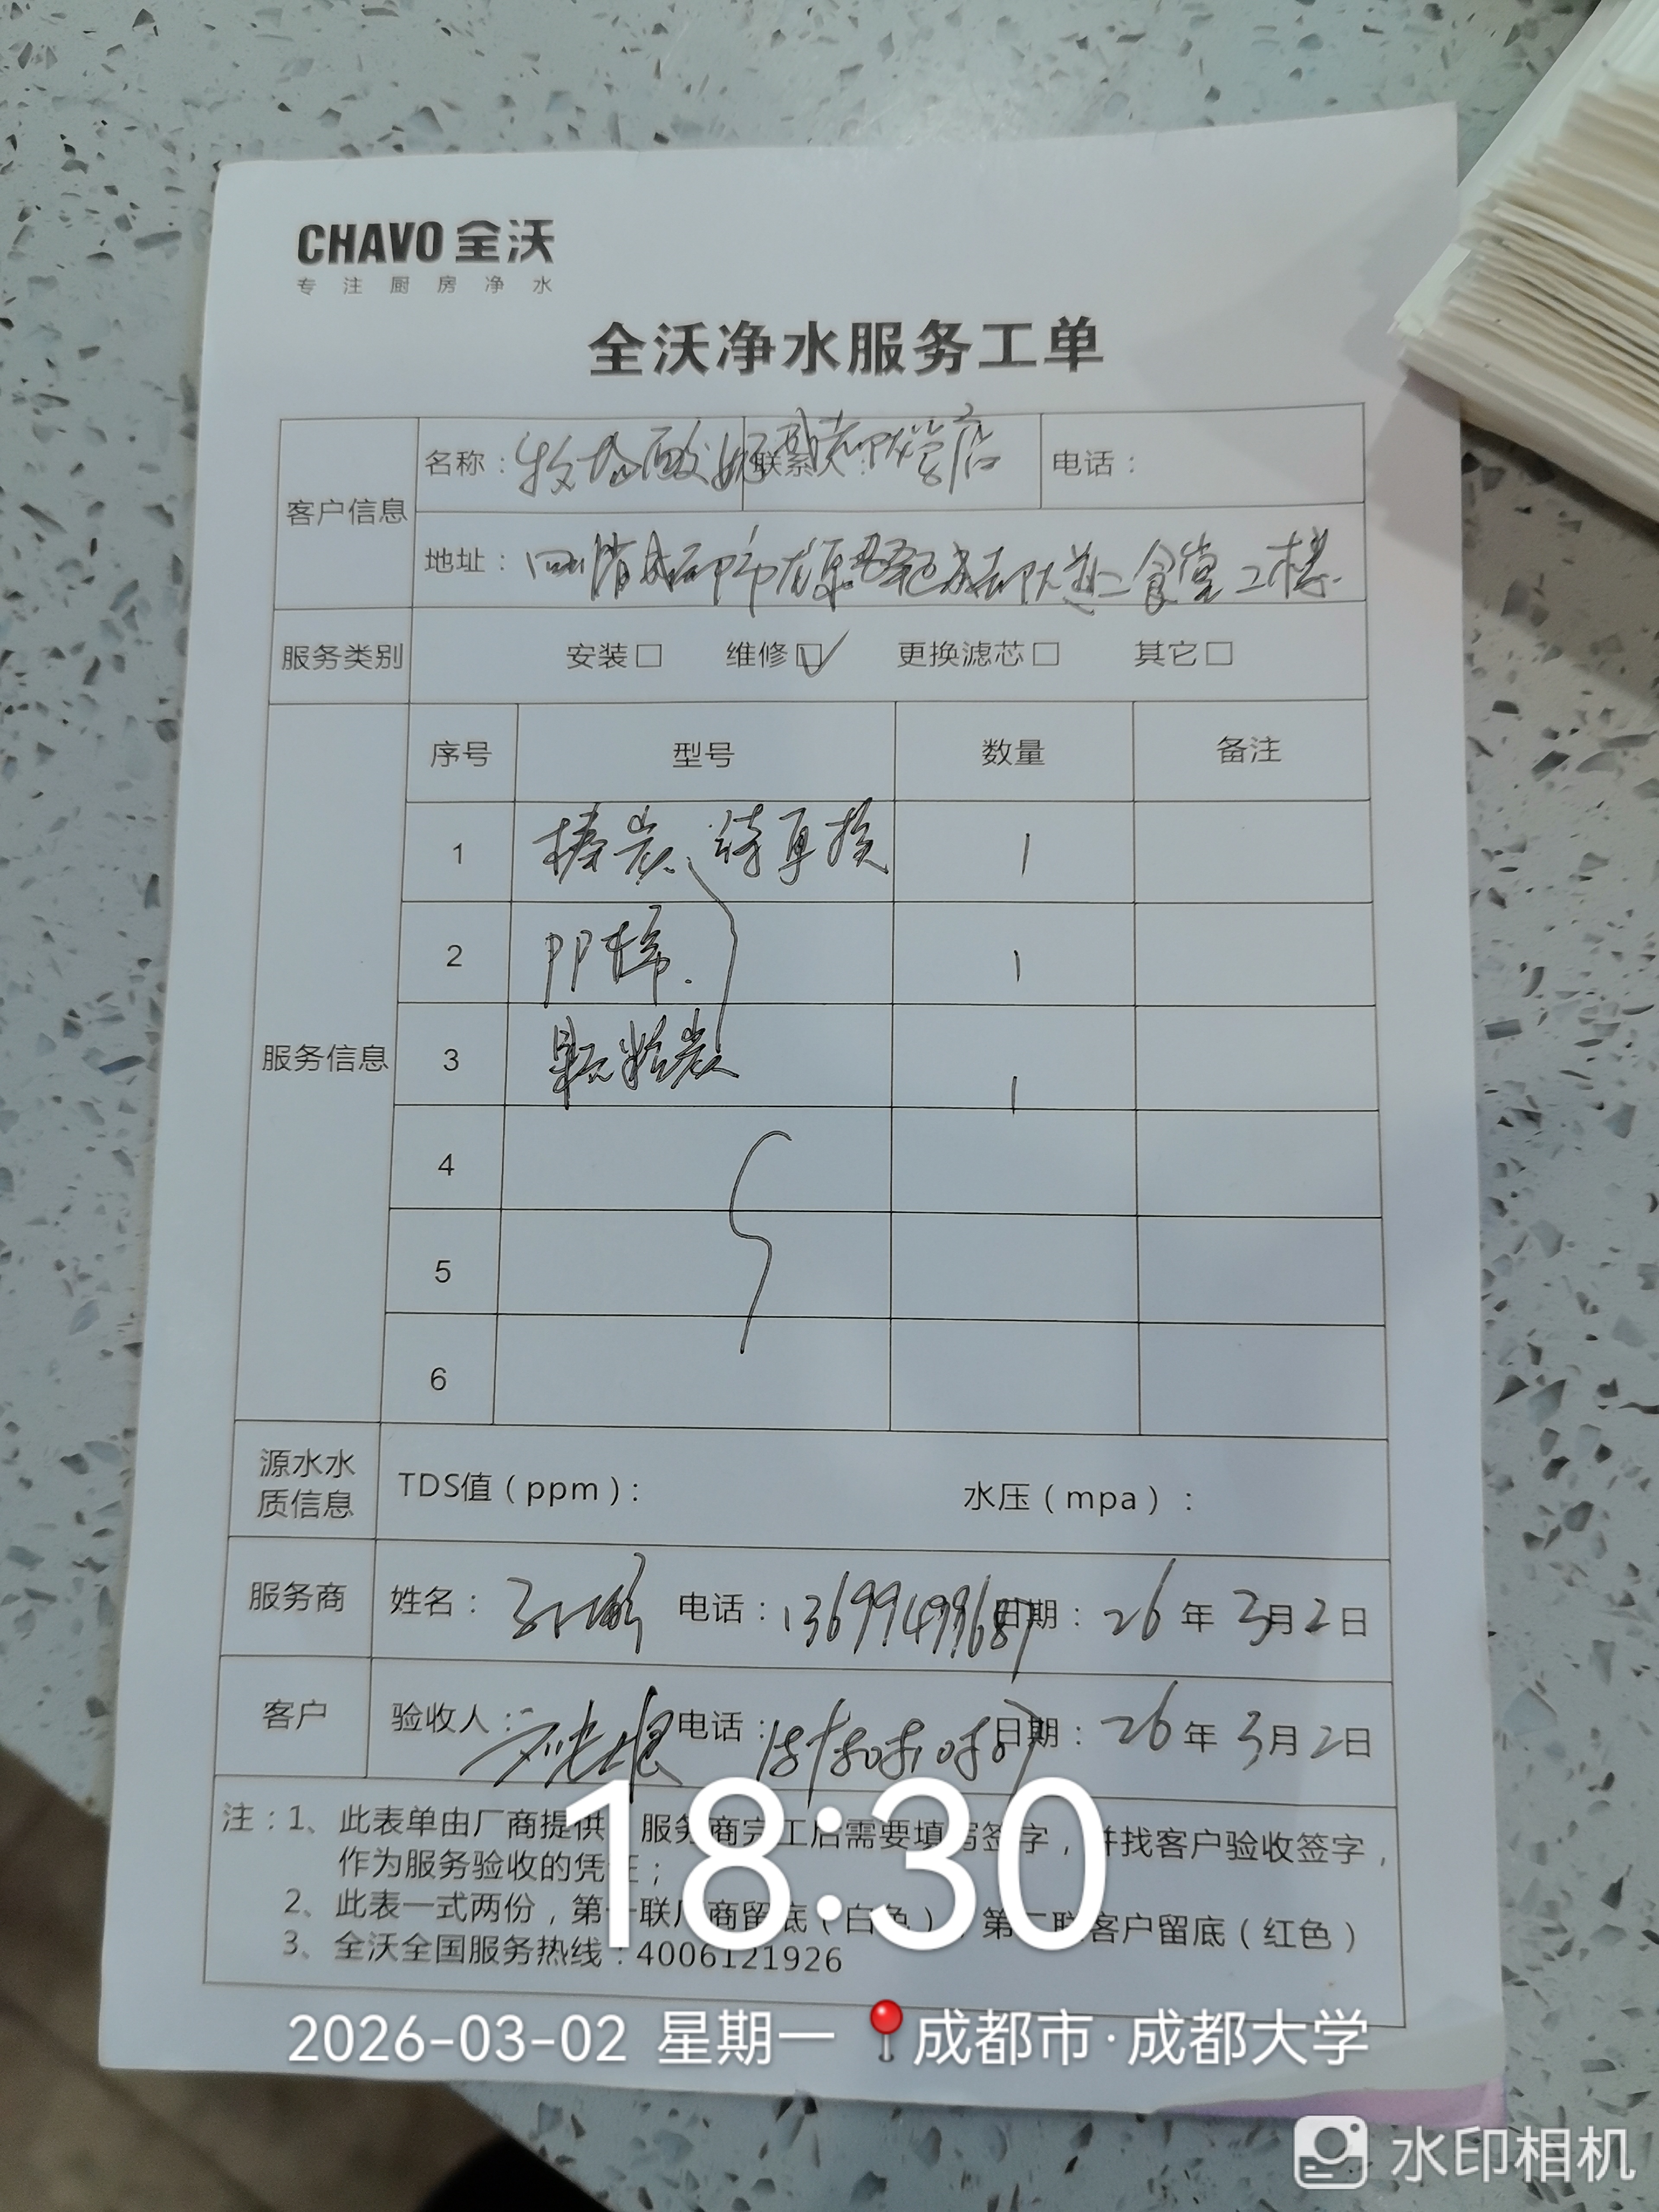 CHAVO 全沃
专注厨房净水
全沃净水服务工单
客户信息
名称：牧场酸奶 成都大学店 联系人： 电话：
地址：四川省成都市龙泉驿区成都大学二食堂二楼
服务类别 安装□ 维修☑ 更换滤芯□ 其它□
服务信息
序号 型号 数量 备注
1 棒炭、待更换 1
2 PP棉. 1
3 颗粒炭 1
4
5
6
源水水质信息 TDS值（ppm）： 水压（mpa）：
服务商 姓名： 电话：13699499687 日期：26年3月2日
客户 验收人： 电话： 日期：26年3月2日
注：1、此表单由厂商提供 服务商完工后需要填写签字，并找客户验收签字，
作为服务验收的凭证；
2、此表一式两份，第一联厂商留底（白色） 第二联客户留底（红色）
3、全沃全国服务热线：4006121926
18:30
2026-03-02 星期一 成都市·成都大学
水印相机